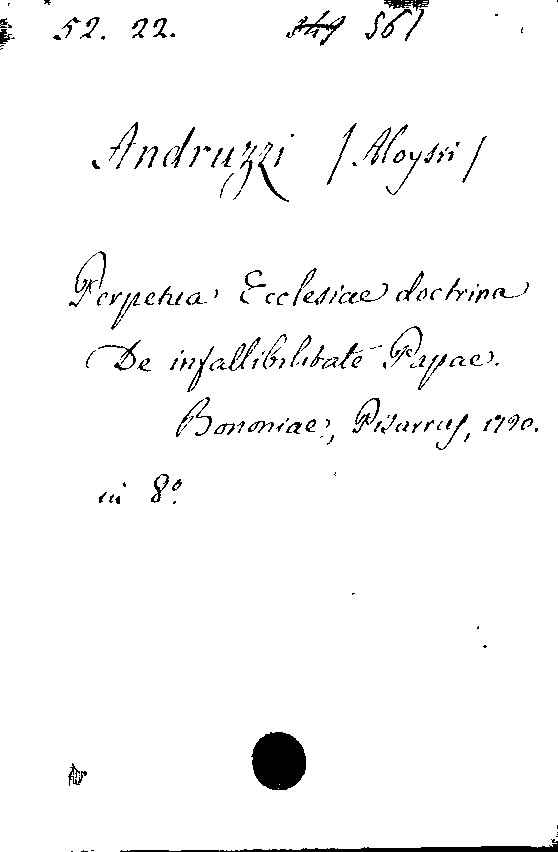 52. 22. 349 561
Andruzzi /Aloysii/
Perpetua Ecclesiae doctrina
De infallibilitate Papae.
Bononiae, Pisarrus, 1720.
in 8º.